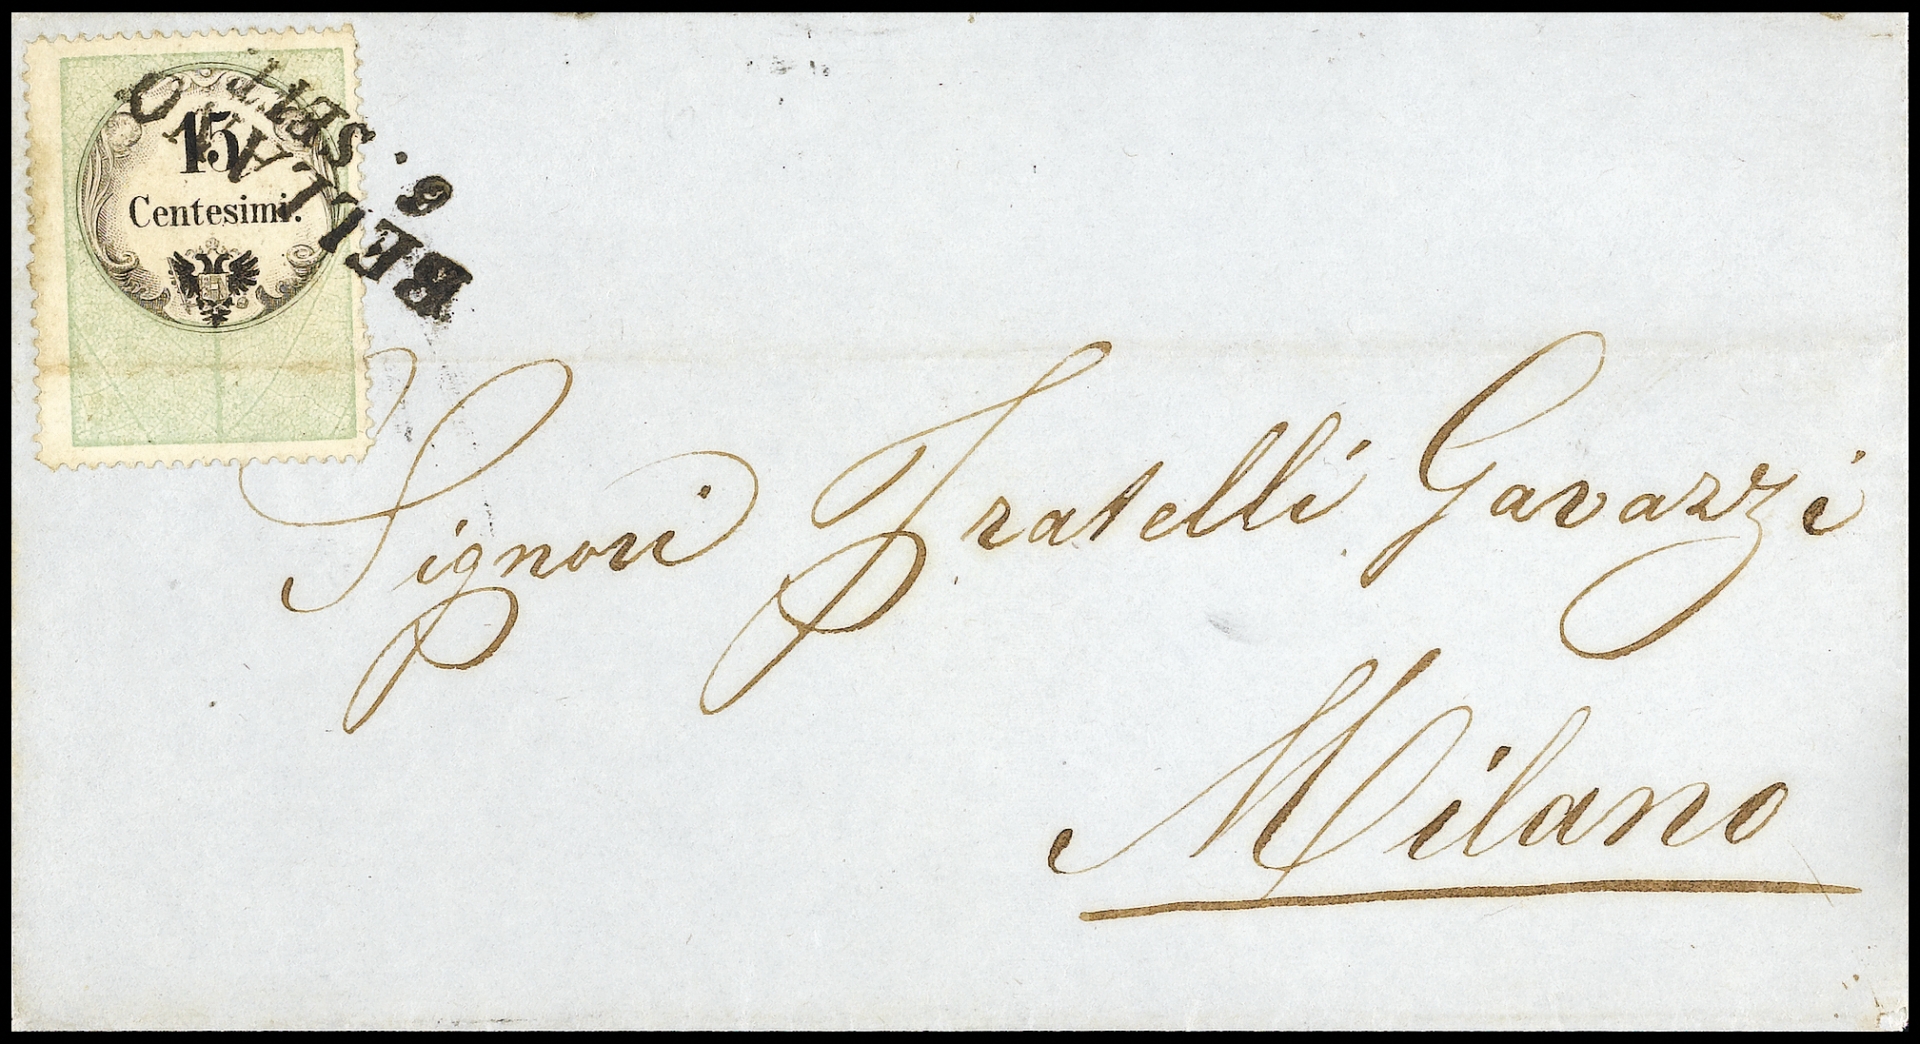 15
Centesimi.
BELLANO.
6. SETT.
Signori Fratelli Gavazzi
Milano